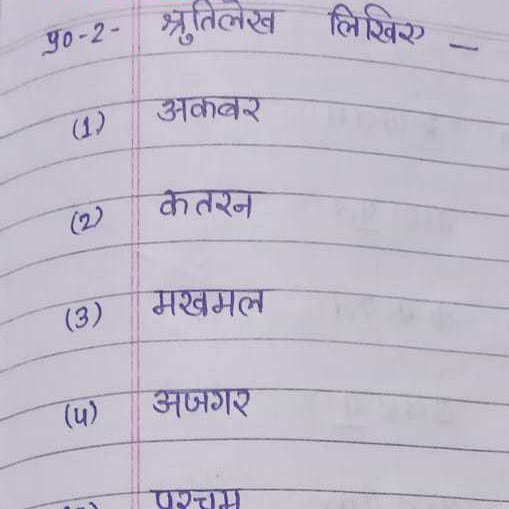 प्र०-2- श्रुतिलेख लिखिए —
(1) अकबर
(2) कतरन
(3) मखमल
(4) अजगर
परचम